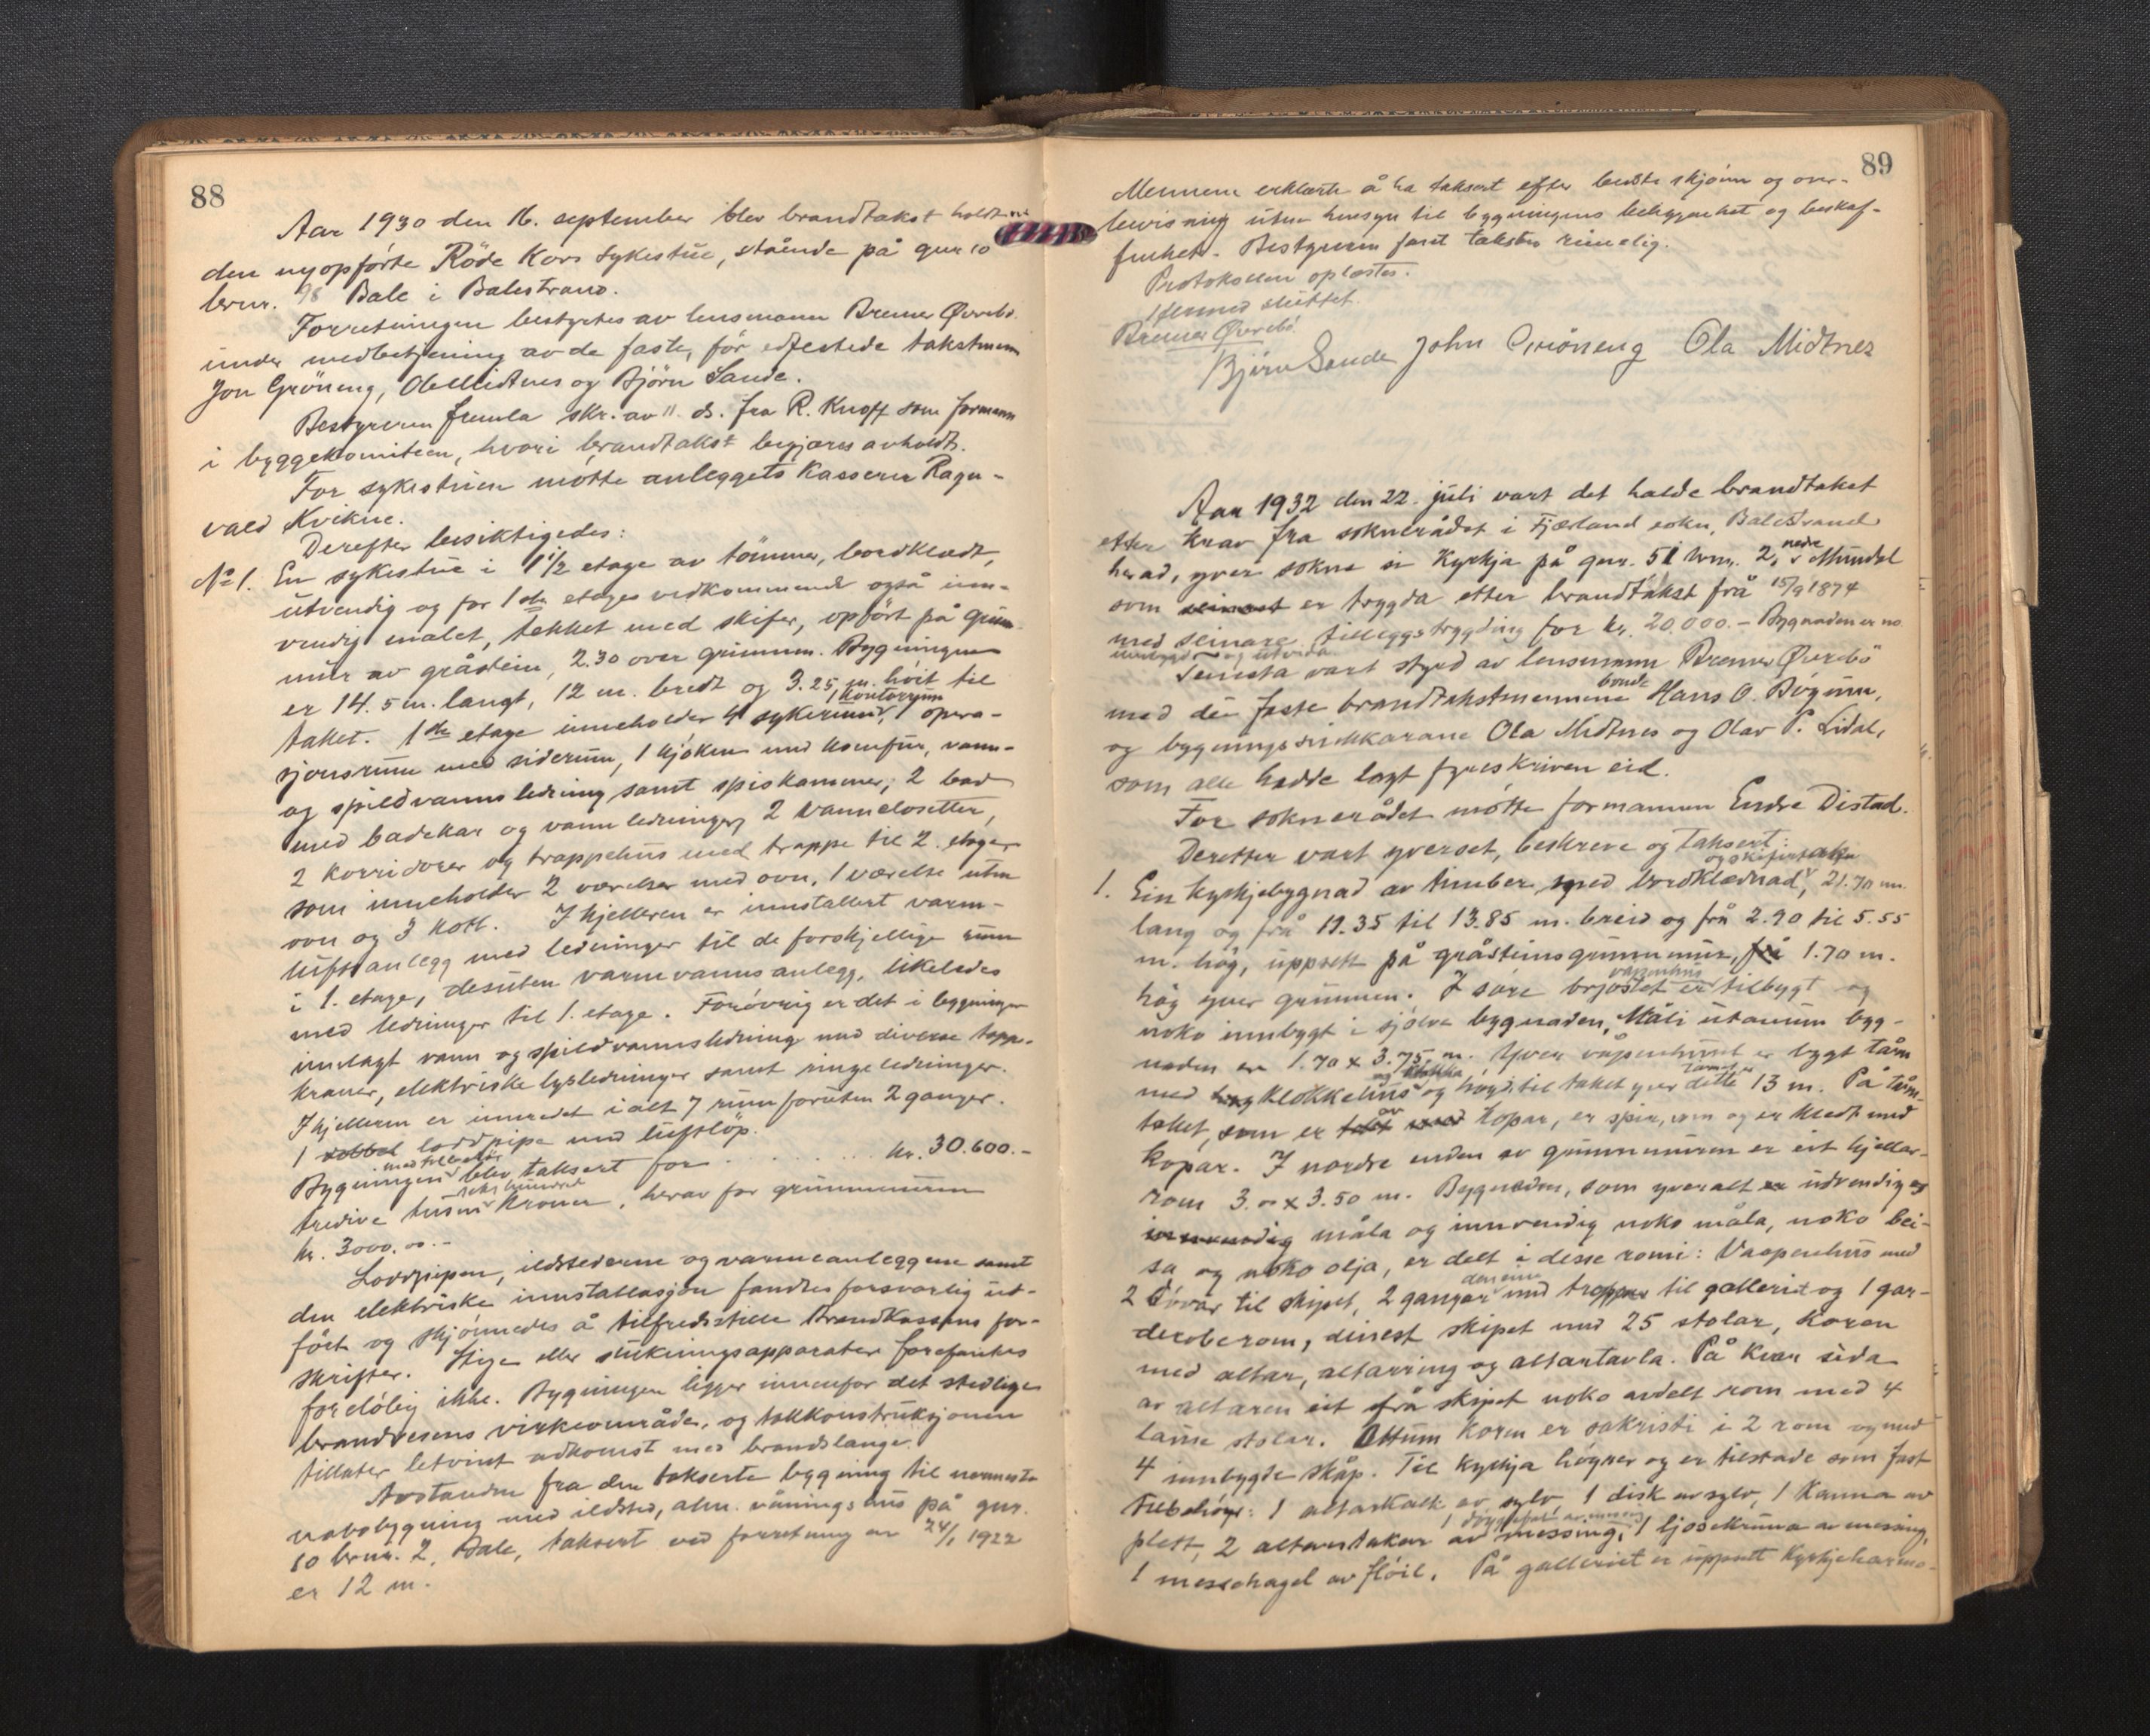 88
Aar 1930 den 16. september blev brandtakst holdt
den nyopførte Röde Kors Sykestue, stående på gnr 10
brnr. 98 Bale i Balestrand.
Forretningen bestyrtes av lensmann Bremer Øvrebö
under medbetjening av de faste, för edfestede takstmenn
Jon Gröneng, Ola Midtnes og Björn Sande.
Bestyreren fremla skr. av 11. ds. fra R. Knoff som formann
i byggekomiteen, hvori brandtakst begjæres avholdt.
For sykestuen mötte anleggets Kasserer Ragn-
vald Kvikne.
Derefter besiktigedes:
No 1. En sykestue i 1 1/2 etage av tömmer, bordklædt,
utvendig og for 1ste etages vedkommende også inn-
vendig malet, tekket med skifer, opfört på grunn-
mur av gråstein, 2.30 over grunnen. Bygningen
er 14.5 m. langt, 12 m. bredt og 3.25 m. höit til
taket. 1ste etage inneholder 4 sykerum, 1 kontorrum, 1 opera-
sjonsrum med siderum, 1 kjöken med komfur, vann-
og spildvannsledning samt spiskammer, 2 bad
med badekar og vannledninger, 2 vannclosetter,
2 korridorer og trappehus med trappe til 2. etage
som inneholder 2 værelser med ovn, 1 værelse uten
ovn og 3 kott. I kjelleren er innstallert varm-
luftsanlegg med ledninger til de forskjellige rum
i 1. etage, desuten varmevannsanlegg, likeledes
med ledninger til 1. etage. Foröving er det i bygningen
innlagt vann og spildvannsledning med diverse tappe-
kraner, elektriske lysledninger samt ringeledninger.
I kjelleren er innredet i alt 7 rum foruten 2 ganger.
1 dobbel loddpipe med luftlöp.
Bygningen med tilbehör blev taksert for . . . . . . . kr. 30.600.-
tredive tusen seks hundred kroner, herav for grunnmuren
kr. 3000.00.-
Loddpipen, ildstederne og varmeanleggene samt
den elektriske innstallasjon fandtes forsvarlig ut-
fört og skjönnedes å tilfredsstille Brandkassens for-
skrifter. Stige eller slukningsapparater forefantes
forelöbig ikke. Bygningen ligger innenfor det stedlige
brandvesens virkeområde, og takkonstruksjonen
tillater letvint adkomst med brandslange.
Avstanden fra den takserte bygning til nærmeste
nabobygning med ildsted, alm. våningshus på gnr.
10 brnr. 2, Bale, taksert ved forretning av 24/1 1922
er 12 m.
89
Mennene erklærte å ha taksert efter bedste skjönn og over-
bevisning uten hensyn til bygningens beliggenhet og beskaf-
fenhet. Bestyreren fant taksten rimelig.
Protokollen oplæstes.
Hermed sluttet.
Bremer Øvrebö
Björn Sande John Gröneng Ola Midtnes
Aar 1932 den 22. juli vart det halde brandtakst
etter krav fra soknerådet i Fjærland sokn, Balestrand
herad, yver sokna si Kyrkja på gnr. 51 brnr. 2, nedre Mundal
som er trygda etter brandtakst frå 15/9 1874
med seinare tilleggstrygding for kr. 20.000.- Bygnaden er no
umbygd og utvida.
Tenesta vart styrd av lensmann Bremer Øvrebö
med dei faste brandtakstmennene bonde Hans O. Böyum,
og bygningssnikkarane Ola Midtnes og Olav P. Lidal,
som alle hadde lagt fyreskriven eid.
For soknerådet mötte formannen Endre Distad.
Deretter vart yverset, beskreve og taksert:
1. Ein Kyrkjebygnad av tunber, med bordklædnad og skifertak, 21.70 m.
lang og frå 11.35 til 13.85 m. breid og frå 2.90 til 5.55
m. hög, uppsett på gråsteinsgrunnmur, 1.70 m.
hög yver grunnen. I söre brjostet er våpenhus tilbygt og
noko innbygt i sjölve bygnaden, Måli utanum byg-
naden er 1.70 x 3.75 m. Yver våpenhuset er bygt tårn
med klokkehus og klokka og högd til taket yver dette tårnet er 13 m. På tårn-
taket, som er av kopar, er spir, som og er kledt med
kopar. I nordre enden av grunnmuren er eit kjellar-
rom 3.00 x 3.50 m. Bygnaden, som yveralt er utvendig og
innvendig måla og innvendig noko måla, noko bei-
sa og noko olja, er delt i desse romi: Vaapenhus med
2 dörar til skipet, 2 gangar den eine med trappa til galleriet og 1 gar-
deroberom, dinest skipet med 25 stolar, Koren
med altar, altarring og altartavla. På kvar sida
av altaren eit frå skipet noko avdelt rom med 4
lause stolar. Attum Koren er sakristi i 2 rom og med
4 innbygde skåp. Til Kyrkja höyrer og er tilstade som fast
tilbehöyr: 1 altarkalk av sylv, 1 disk av sylv, 1 Kanna av
plett, 2 altarstakar av messing, 1 döypefat av messing, 1 ljosekruna av messing,
1 messehagel av flöil. På galleriet er uppsett Kyrkjeharmo-